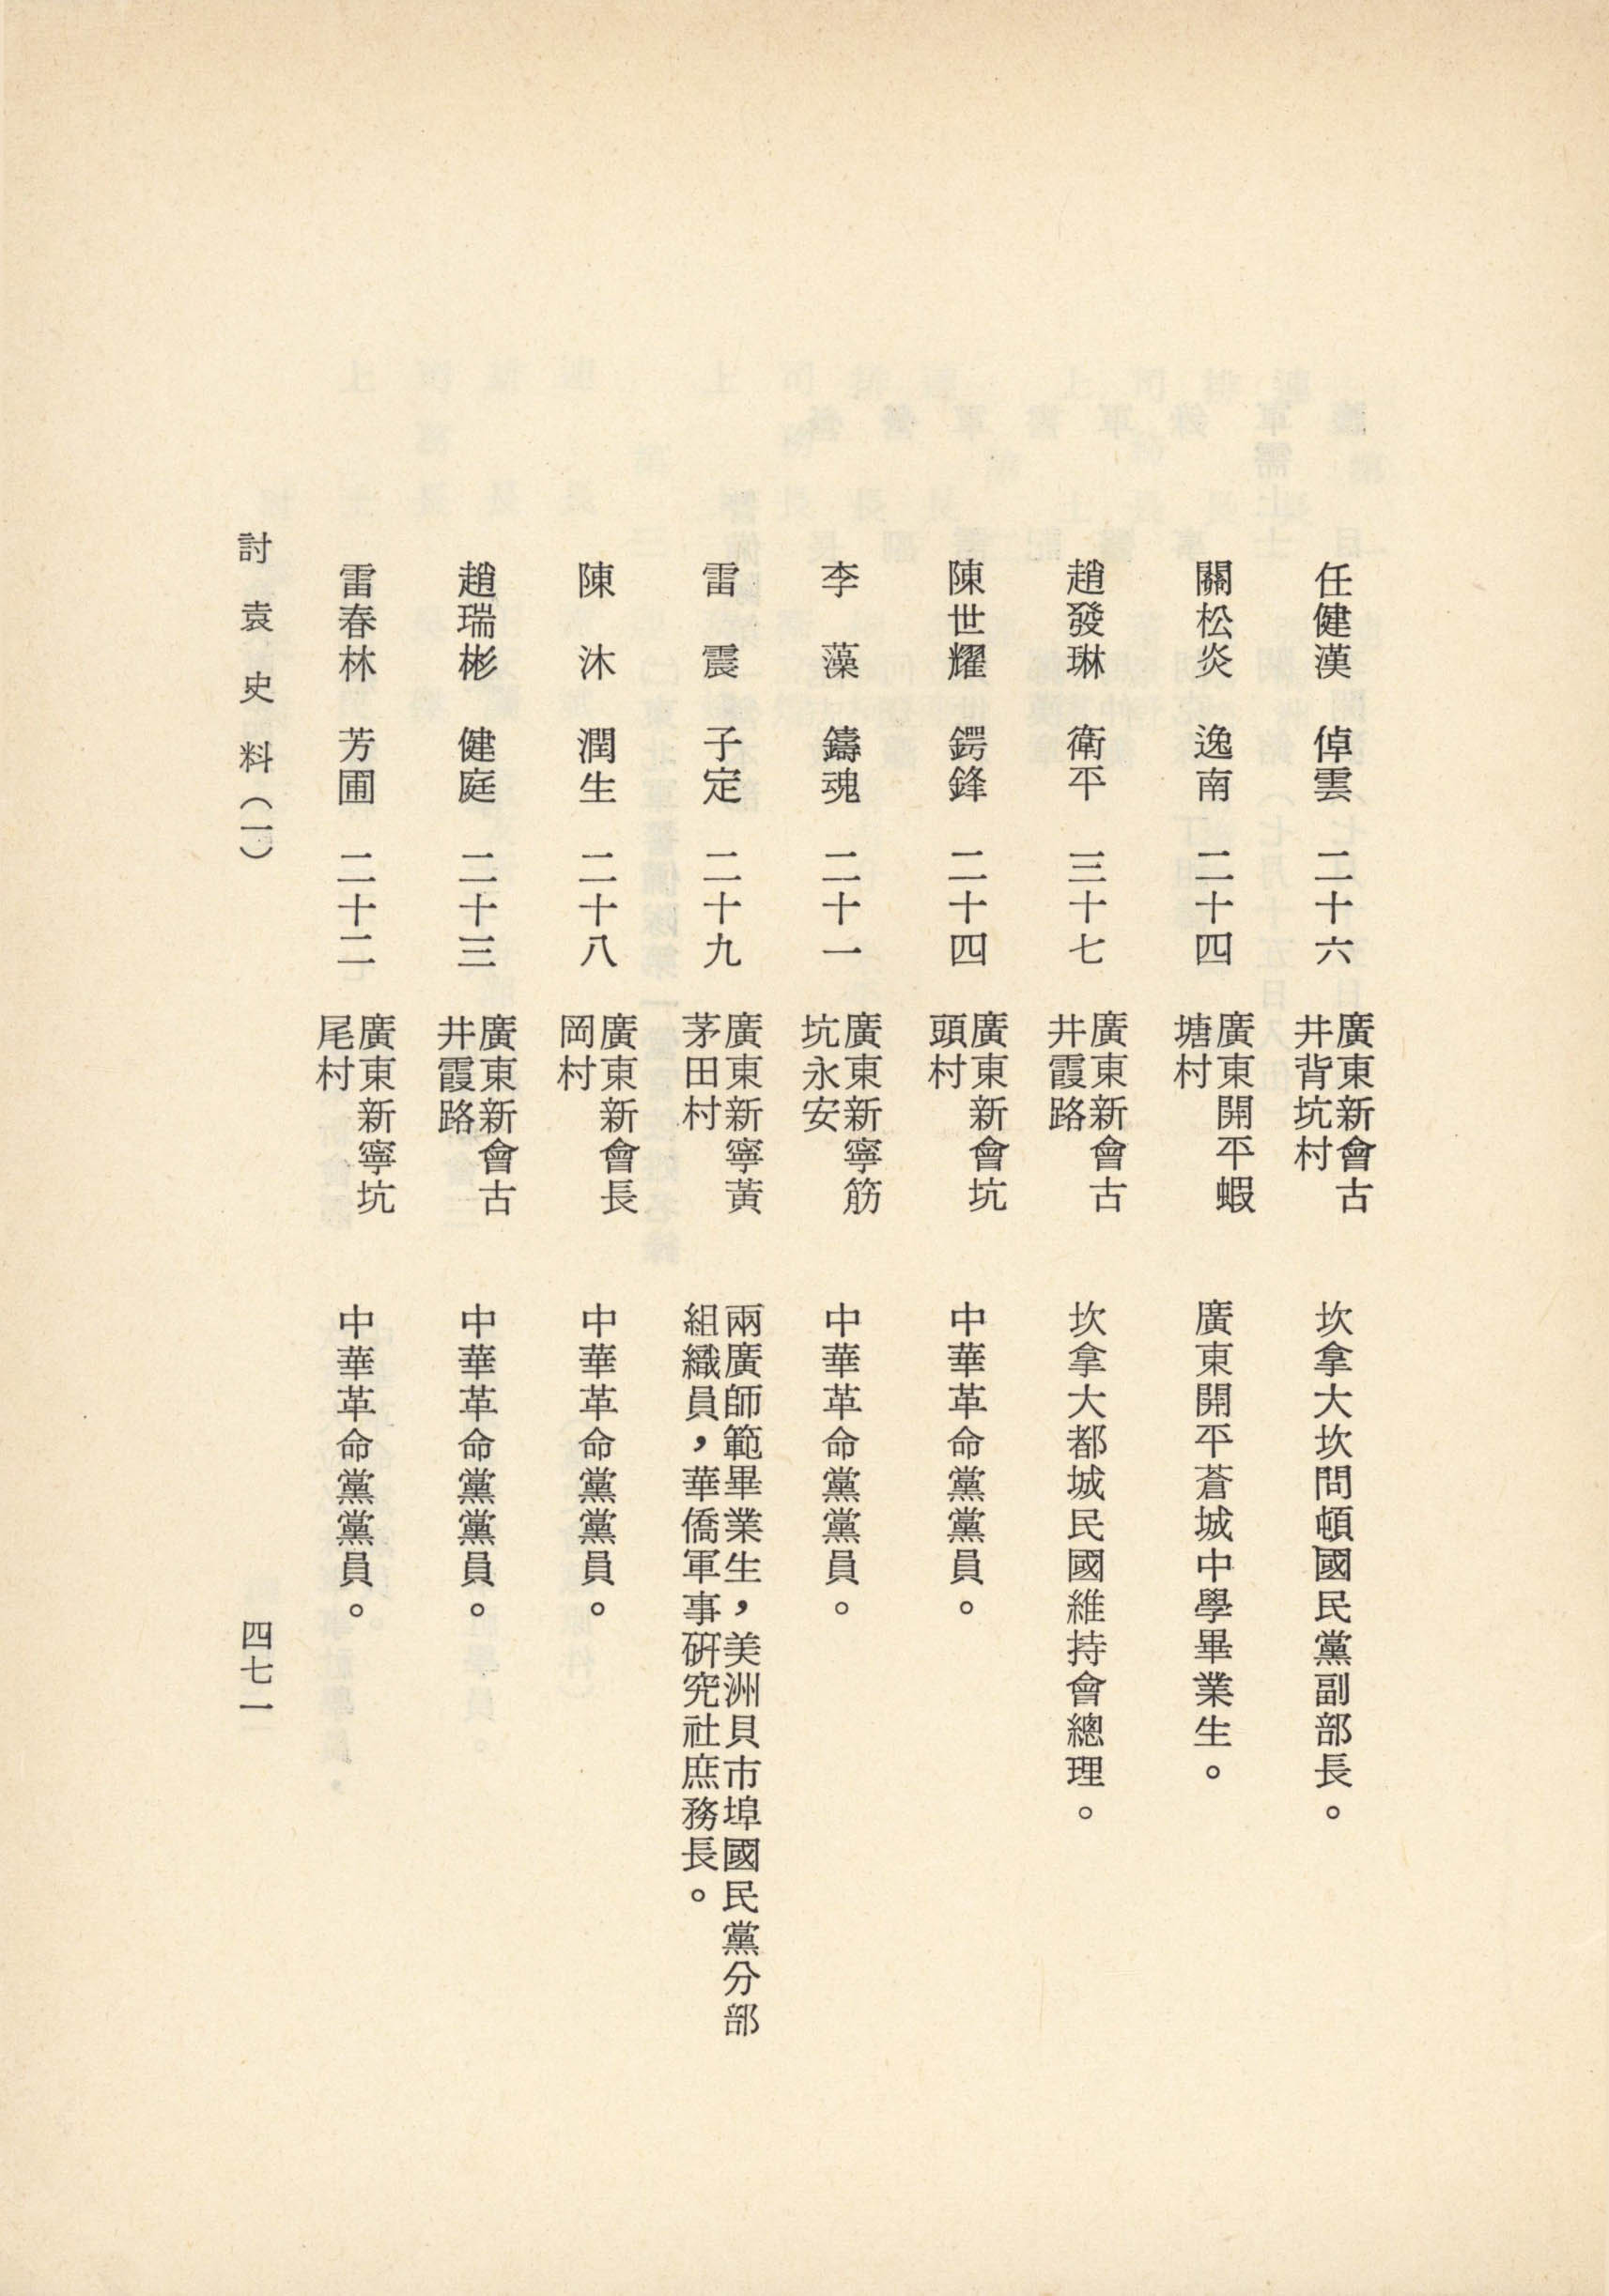 任健漢　倬雲　二十六　廣東新會古
井背坑村　坎拿大坎問頓國民黨副部長。
關松炎　逸南　二十四　廣東開平蝦
塘村　廣東開平蒼城中學畢業生。
趙發琳　衛平　三十七　廣東新會古
井霞路　坎拿大都城民國維持會總理。
陳世耀　鍔鋒　二十四　廣東新會坑
頭村　中華革命黨黨員。
李　藻　鑄魂　二十一　廣東新寧筋
坑永安　中華革命黨黨員。
雷　震　子定　二十九　廣東新寧黃
茅田村　兩廣師範畢業生，美洲貝市埠國民黨分部
組織員，華僑軍事研究社庶務長。
陳　沐　潤生　二十八　廣東新會長
岡村　中華革命黨黨員。
趙瑞彬　健庭　二十三　廣東新會古
井霞路　中華革命黨黨員。
雷春林　芳圃　二十二　廣東新寧坑
尾村　中華革命黨黨員。
討袁史料（一）
四七一